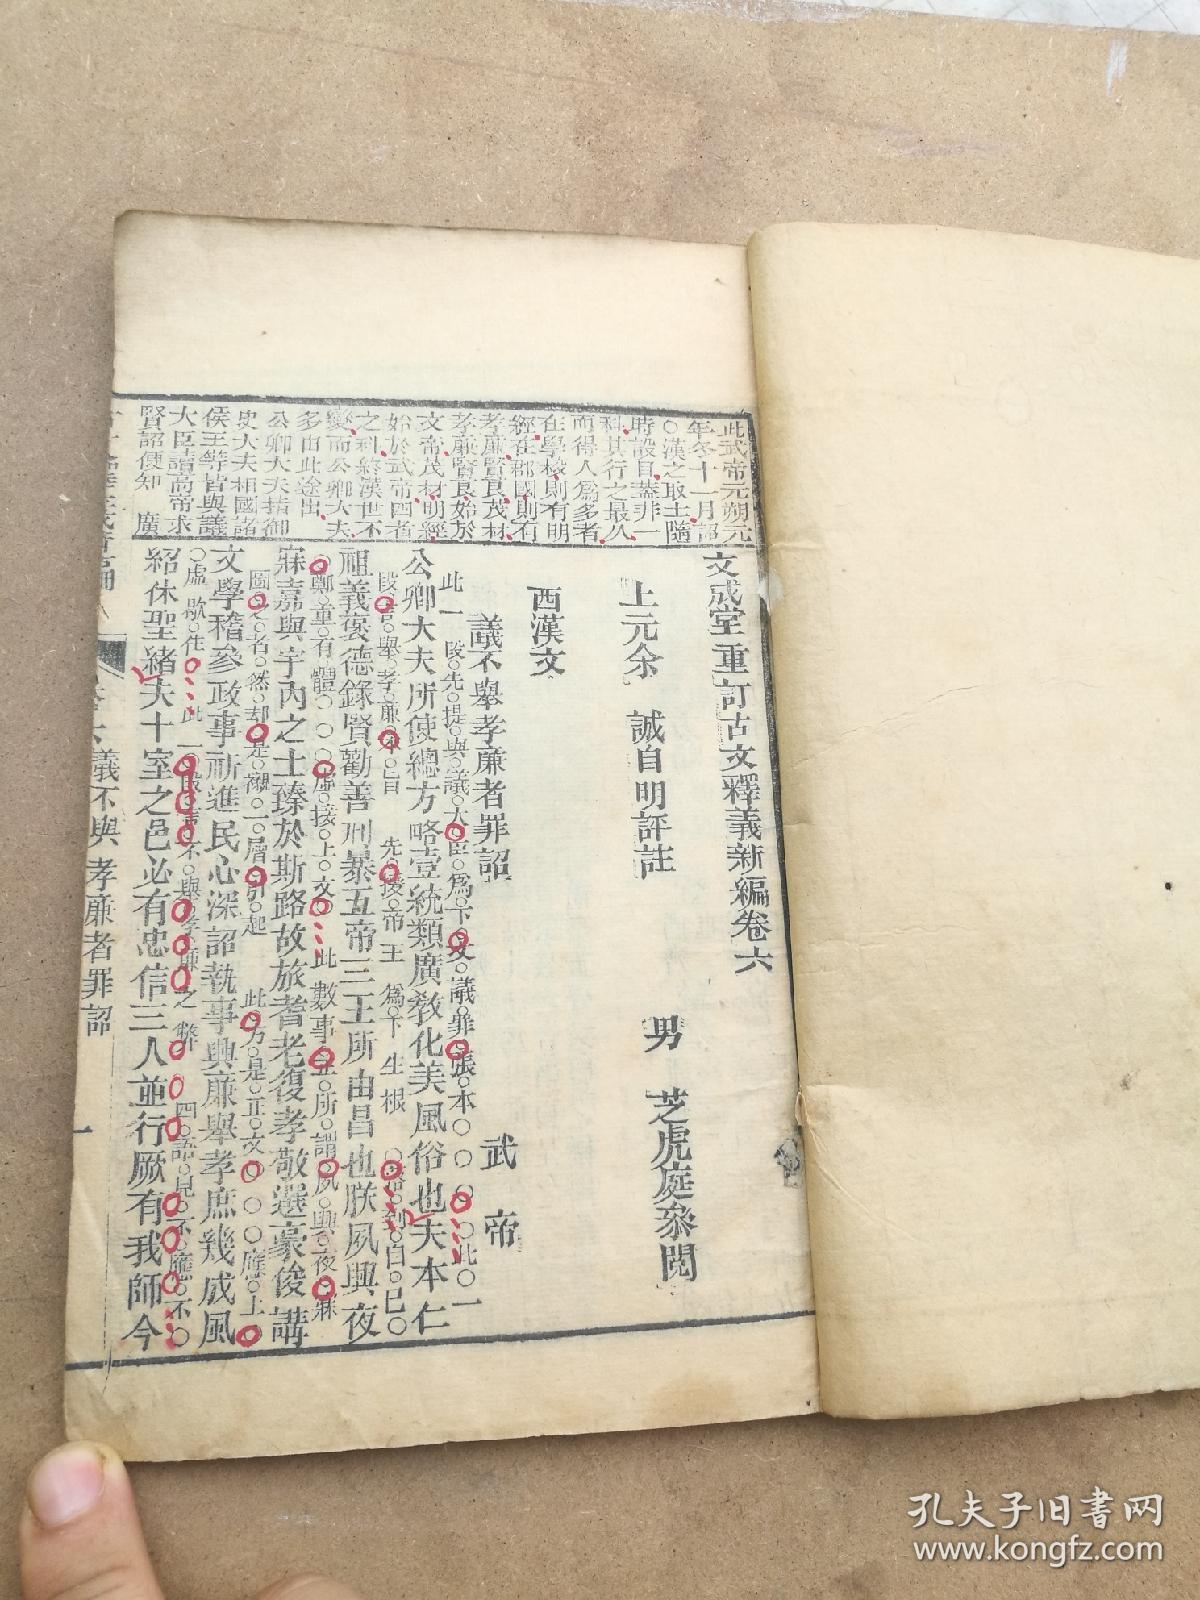 文成堂重訂古文釋義新編卷六
上元余 誠自明評註 男 芝虎庭叅閱
西漢文
議不舉孝廉者罪詔 武帝
此一段先提與議大臣爲下文議罪張本 此一
公卿大夫所使總方略壹統類廣教化美風俗也夫本仁
段言舉孝廉本旨 先接帝王 爲下生根 落到自己
祖義褒德錄賢勸善刑暴五帝三王所由昌也朕夙興夜
鄭重有體 虛接上文 此數事正所謂夙興夜寐
寐嘉與宇內之士臻於斯路故旅耆老復孝敬選豪俊講
圖之者然却是襯一層引起 此方是正文 應上
文學稽參政事祈進民心深詔執事興廉舉孝庶幾成風
虛歇住 此一段重不舉孝廉之弊 四語見不應不
紹休聖緒夫十室之邑必有忠信三人並行厥有我師今
此武帝元朔元
年冬十一月詔
○漢之取士隨
時設目蓋非一
科其行之最久
而得人爲多者
在學校則有明
經在郡國則有
孝廉賢良茂材
孝廉賢良始於
文帝茂材明經
始於武帝四者
之科終漢世不
變而公卿大夫
多由此途出
公卿大夫指御
史大夫相國諸
侯王等皆與議
大臣讀高帝求
賢詔便知 廣
卷六 議不舉孝廉者罪詔 一
孔夫子旧書网
www.kongfz.com